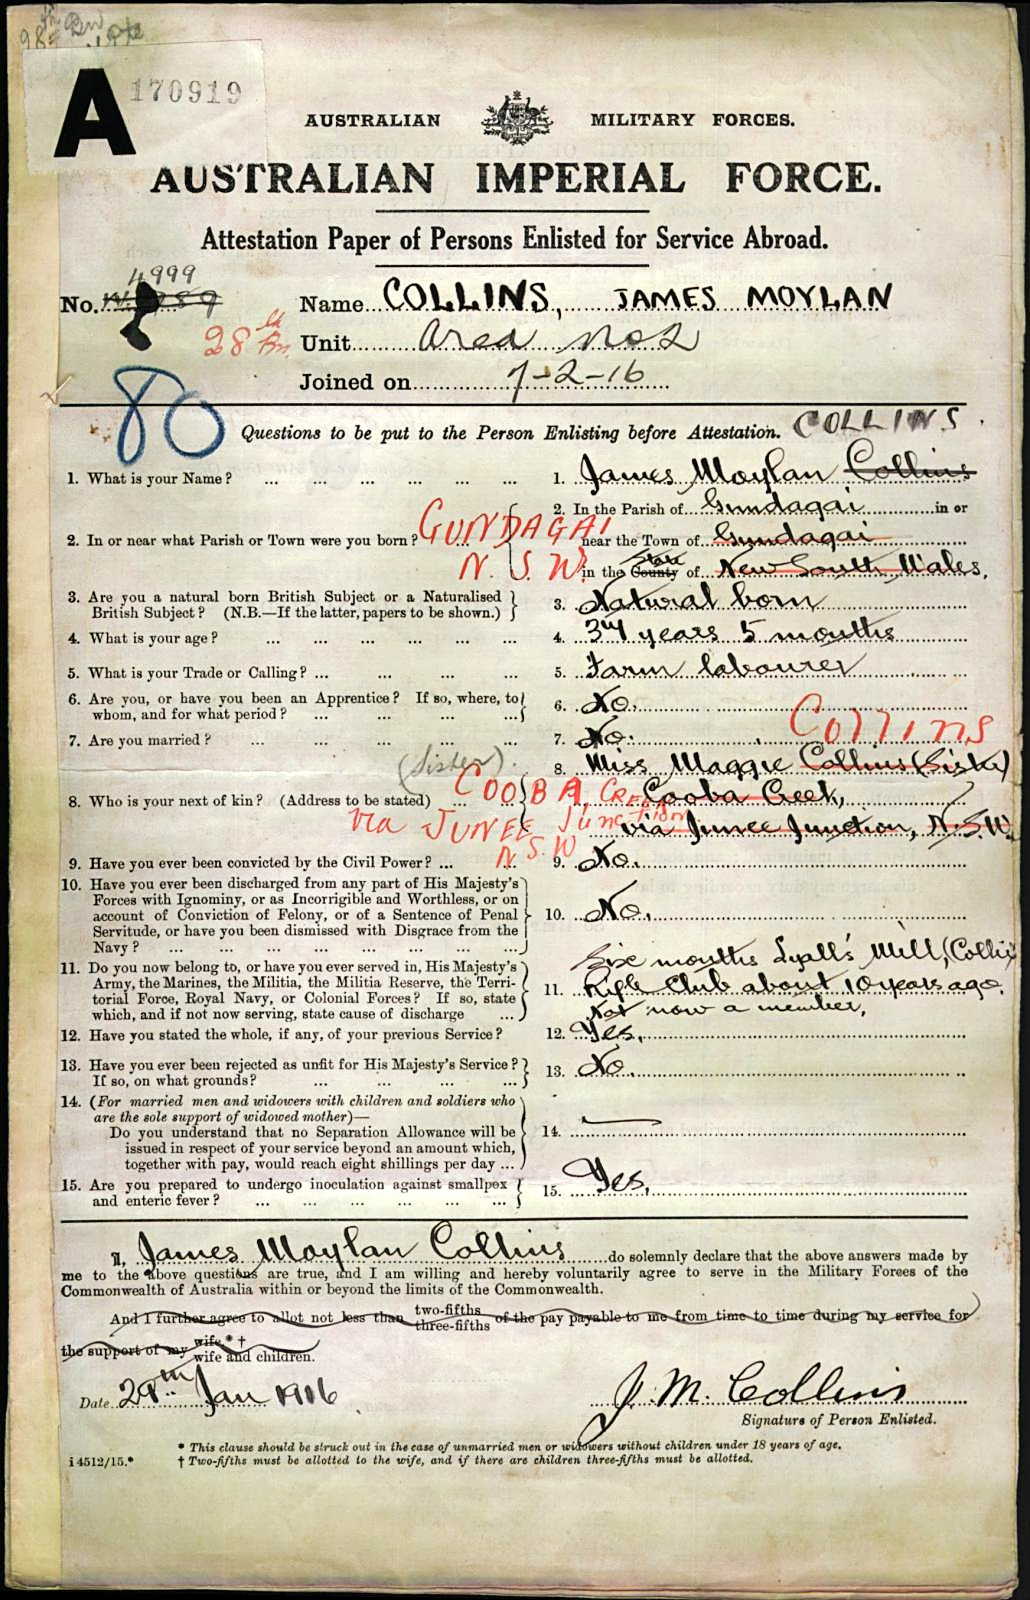 A 170919
AUSTRALIAN MILITARY FORCES.
AUSTRALIAN IMPERIAL FORCE.
Attestation Paper of Persons Enlisted for Service Abroad.
4999
No. Name COLLINS, JAMES MOYLAN
28th Bn. Unit Area No 2
Joined on 7-2-16
80
Questions to be put to the Person Enlisting before Attestation. COLLINS
1. What is your Name? ... 1. James Moylan Collins
2. In the Parish of Gundagai in or
2. In or near what Parish or Town were you born? GUNDAGAI near the Town of Gundagai
N.S.W. in the County State of New South Wales.
3. Are you a natural born British Subject or a Naturalised
British Subject? (N.B.—If the latter, papers to be shown.) 3. Natural born
4. What is your age? ... 4. 34 years 5 months
5. What is your Trade or Calling? ... 5. Farm labourer
6. Are you, or have you been an Apprentice? If so, where, to
whom, and for what period? ... 6. No.
7. Are you married? ... 7. No. COLLINS
(Sister) 8. Miss Maggie Collins (Sister)
8. Who is your next of kin? (Address to be stated) ... COOBA CREEK Cooba Creek,
via JUNEE Junction via Junee Junction, N.S.W.
N.S.W
9. Have you ever been convicted by the Civil Power? ... 9. No.
10. Have you ever been discharged from any part of His Majesty's
Forces with Ignominy, or as Incorrigible and Worthless, or on
account of Conviction of Felony, or of a Sentence of Penal 10. No.
Servitude, or have you been dismissed with Disgrace from the
Navy? ...
Six months Lyall's Mill, (Collie)
11. Do you now belong to, or have you ever served in, His Majesty's
Army, the Marines, the Militia, the Militia Reserve, the Terri-
torial Force, Royal Navy, or Colonial Forces? If so, state 11. Rifle Club about 10 years ago.
which, and if not now serving, state cause of discharge ... Not now a member.
12. Have you stated the whole, if any, of your previous Service? 12. Yes.
13. Have you ever been rejected as unfit for His Majesty's Service?
If so, on what grounds? ... 13. No.
14. (For married men and widowers with children and soldiers who
are the sole support of widowed mother)—
Do you understand that no Separation Allowance will be 14. —
issued in respect of your service beyond an amount which,
together with pay, would reach eight shillings per day ...
15. Are you prepared to undergo inoculation against smallpox
and enteric fever? ... 15. Yes.
I, James Moylan Collins do solemnly declare that the above answers made by
me to the above questions are true, and I am willing and hereby voluntarily agree to serve in the Military Forces of the
Commonwealth of Australia within or beyond the limits of the Commonwealth.
And I further agree to allot not less than two-fifths three-fifths of the pay payable to me from time to time during my service for
the support of my wife*† wife and children.
Date 28th Jan 1916 J. M. Collins
Signature of Person Enlisted.
* This clause should be struck out in the case of unmarried men or widowers without children under 18 years of age.
i 4512/15.* † Two-fifths must be allotted to the wife, and if there are children three-fifths must be allotted.